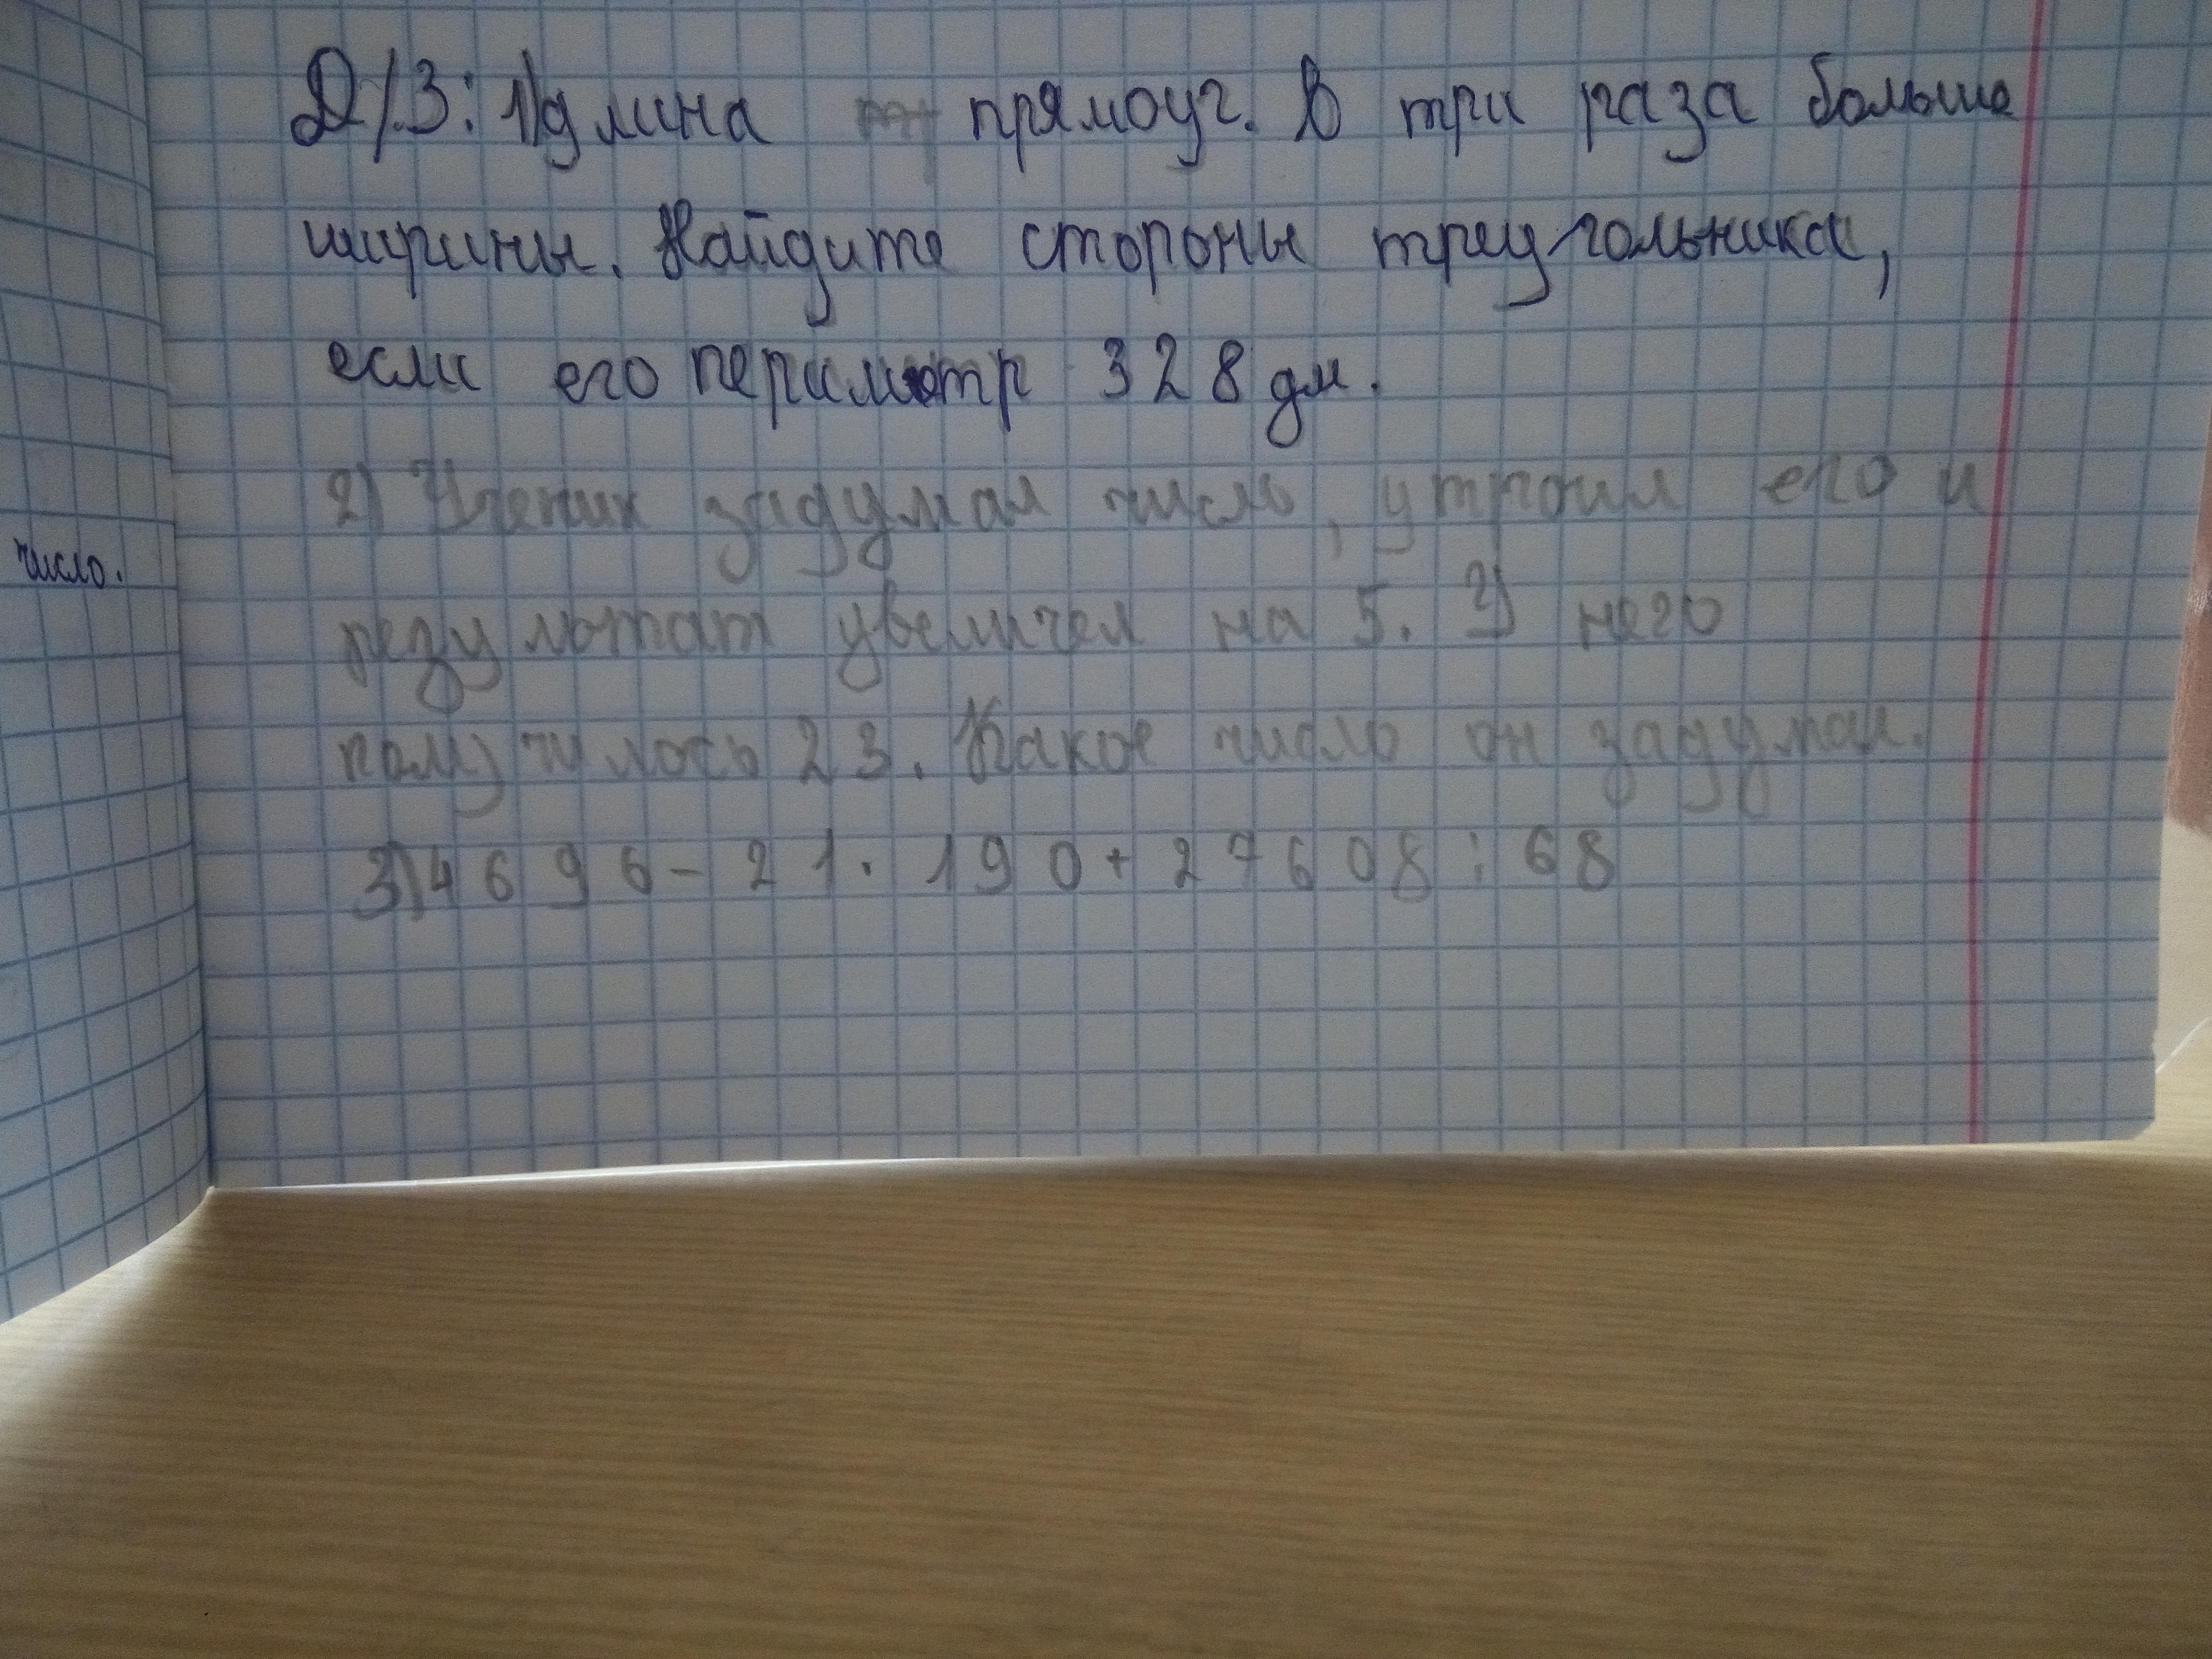 число.
Д/З: 1) длина прямоуг. В три раза больше
ширины. Найдите стороны треугольника,
если его периметр 328 дм.
2) Ученик задумал число, утроил его и
результат увеличел на 5. У него
получилось 23. Какое число он задумал.
3) 4696 - 21 · 190 + 27608 : 68